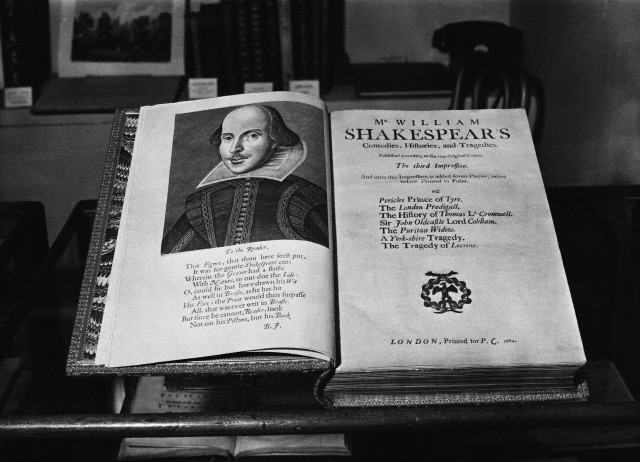 To the Reader.
This Figure, that thou here ſeeſt put,
It was for gentle Shakeſpear cut:
Wherein the Graver had a ſtrife
With Nature, to out-doe the Life:
O, could he but have drawn his Wit
As well in Braſſe, as he has hit
His Face; the Print would then ſurpaſſe
All, that was ever writ in Braſſe.
But ſince he cannot, Reader, look
Not on his Picture, but his Book.
B. J.
Mr. WILLIAM
SHAKESPEAR'S
Comedies, Hiſtories, and Tragedies.
Publiſhed according to the true Original Copies.
The third Impreſſion.
And unto this Impreſſion is added ſeven Playes, never
before Printed in Folio.
viz.
Pericles Prince of Tyre.
The London Prodigall.
The Hiſtory of Thomas Ld. Cromwell.
Sir John Oldcaſtle Lord Cobham.
The Puritan Widow.
A York-ſhire Tragedy.
The Tragedy of Locrine.
LONDON, Printed for P. C. 1664.